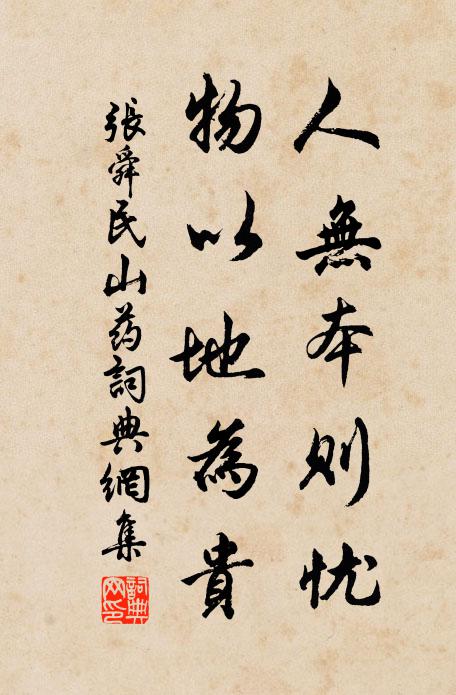 人無本則忧
物以地為貴
張舜民山药詞典網集
詞典
网印